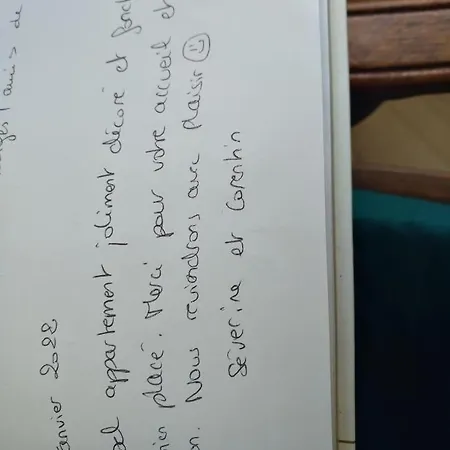 anvier 2022
appartement joliment décoré et fonct
placé. Merci pour votre accueil et
on. Nous reviendrons avec plaisir ☺
Séverine et Corentin